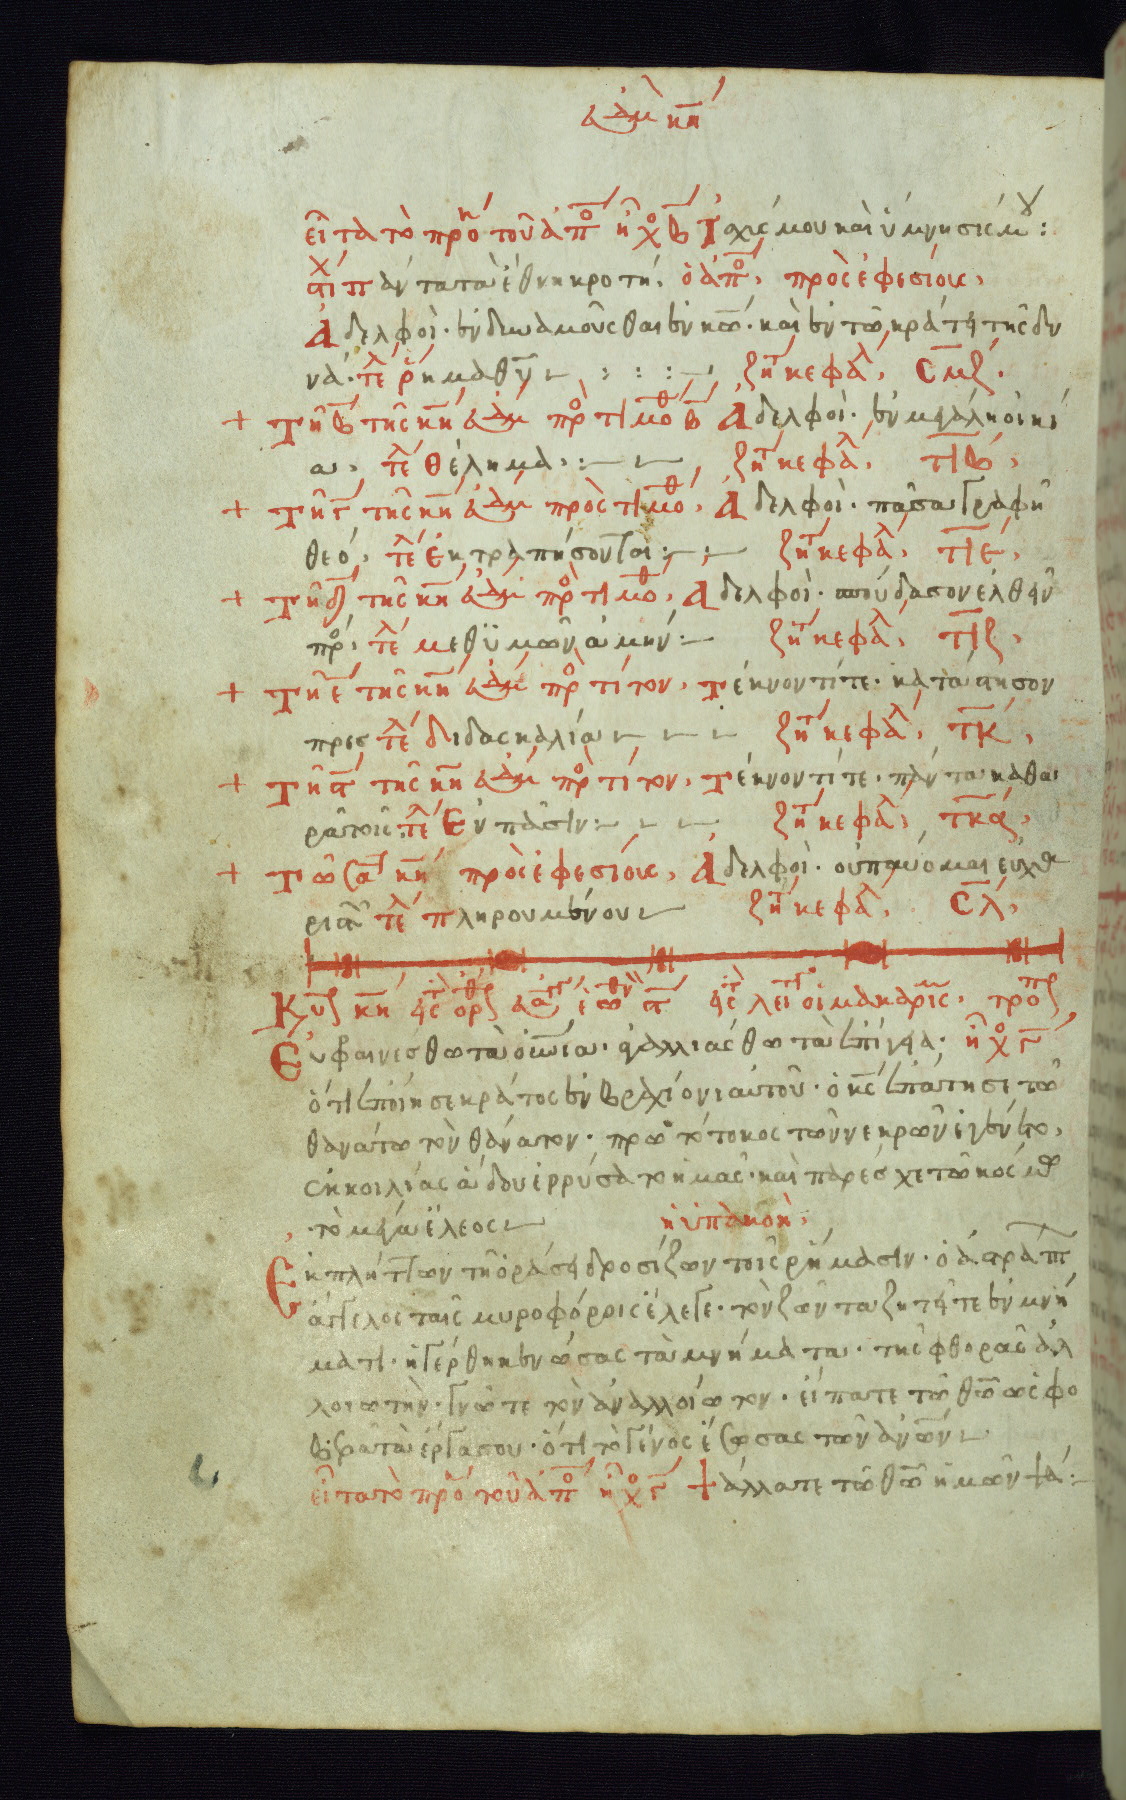 ἑβδομὰ κη
εἶτα τὸ προκ τοῦ ἀπο ἦχο β Ἰσχύς μου καὶ ὕμνησίς μου:
στίχ πάντα τὰ ἔθνη κροτή. ὁ ἀπο, πρὸς ἐφεσίους,
Ἀδελφοὶ. ἐνδυναμοῦσθαι ἐν κω. καὶ ἐν τῶ κράτει τῆς δυ
νά. τέλ ῥῆμα θυ ζητ κεφαλ, σμζ.
+ Τῆ β τῆς κη ἑβδομ προ τιμοθ β Ἀδελφοὶ. ἐν μεγάλη οἰκί
α, τέλ θέλημα. ζητ κεφαλ, τιβ,
+ Τῆ γ τῆς κη ἑβδομ πρὸς τιμοθ, Ἀδελφοὶ. πᾶσα γραφὴ
θεό, τέλ ἐκτραπήσονται ζητ κεφαλ, τιε,
+ Τῆ δ τῆς κη ἑβδομ προ τιμοθ, Ἀδελφοὶ. σπούδασον ἐλθεῖν
προ, τέλ μεθ ὑμῶν ἀμήν: ζητ κεφαλ, τιζ,
+ Τῆ ε τῆς κη ἑβδομ προ τίτον, Τέκνον τίτε. κατάστησον
πρεσ τέλ διδασκαλία ζητ κεφαλ, τκ,
+ Τῆ τῆς κη ἑβδομ προ τίτον, Τέκνον τίτε. πάντα καθα
ρὰ τοῖς. τέλ Ἐν πᾶσιν: ζητ κεφαλ, τκα,
+ Τῶ σα κη πρὸς ἐφεσίους, Ἀδελφοὶ. οὐ παύομαι εὐχα
ριστ τέλ πληρουμένου ζητ κεφαλ, σλ,
Κυ κη εἰς λειτ οἱ μακαρισμ, τροπ
Εὐφραινέσθω τὰ οὐνια. ἀγαλλιάσθω τὰ ἐπίγεια. ἦχο γ
ὅτι ἐποίησε κράτος ἐν βραχίονι αὐτοῦ. ὁ κς ἐπάτησε τῶ
θανάτω τὸν θάνατον. πρωτότοκος τῶν νεκρῶν ἐγένετο,
ἐκ κοιλίας ἅδου ἐρρύσατο ἡμᾶς. καὶ παρέσχε τῶ κόσμω
. τὸ μέγα ἔλεος ἡ ὑπακοὴ,
Ἐκπλήττων τῆ ὁράσει δροσίζων τοῖς ῥήμασιν. ὁ ἀστράπτ
ἄγγελος ταῖς μυροφόροις ἔλεγε. τὸν ζῶντα ζητεῖτε ἐν μνή
ματι. ἠγέρθη κενώσας τὰ μνήματα. τῆς φθορᾶς ἀλ
λοιωτὴν. γνῶτε τὸν ἀναλλοίωτον. εἴπατε τῶ θω ὡς φο
βερὰ τὰ ἔργα σου. ὅτι τὸ γένος ἔσωσας τῶν ἀνων
εἶτα τὸ προ τοῦ ἀπο ἦχο γ Ψάλλατε τῶ θω ἡμῶν ψά: